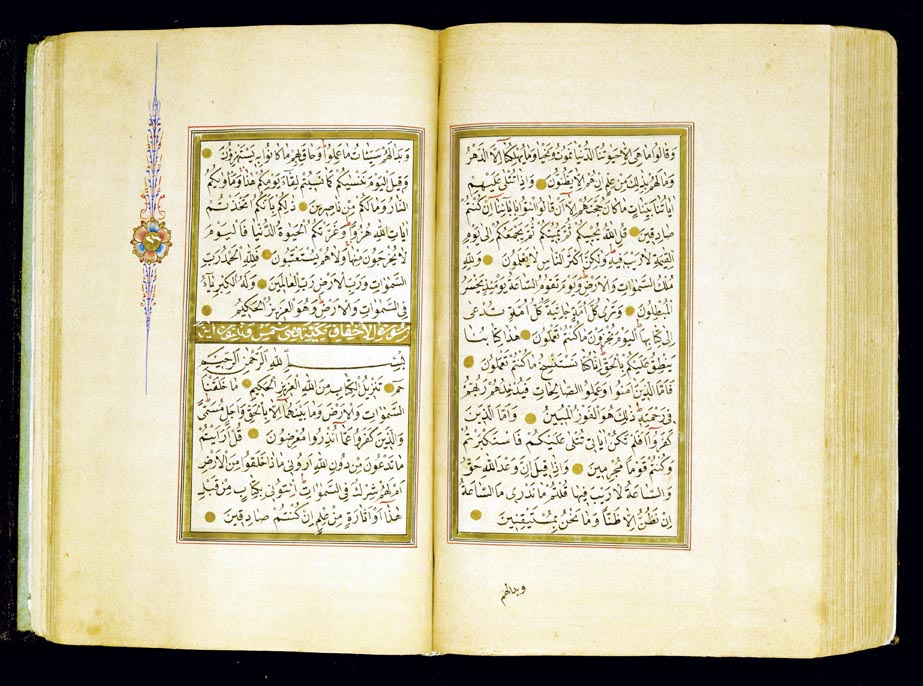 وَقَالُوا مَا هِيَ اِلَّا حَيٰوتُنَا الدُّنْيَا نَمُوتُ وَنَحْيَا وَمَا يُهْلِكُنَا اِلَّا الدَّهْرُ
وَمَا لَهُمْ بِذٰلِكَ مِنْ عِلْمٍ اِنْ هُمْ اِلَّا يَظُنُّونَ وَاِذَا تُتْلٰى عَلَيْهِمْ
اٰيَاتُنَا بَيِّنَاتٍ مَا كَانَ حُجَّتَهُمْ اِلَّا اَنْ قَالُوا ائْتُوا بِاٰبَائِنَا اِنْ كُنْتُمْ
صَادِقِينَ قُلِ اللهُ يُحْيِيكُمْ ثُمَّ يُمِيتُكُمْ ثُمَّ يَجْمَعُكُمْ اِلٰى يَوْمِ
الْقِيٰمَةِ لَا رَيْبَ فِيهِ وَلٰكِنَّ اَكْثَرَ النَّاسِ لَا يَعْلَمُونَ وَلِلّٰهِ
مُلْكُ السَّمٰوَاتِ وَالْاَرْضِ وَيَوْمَ تَقُومُ السَّاعَةُ يَوْمَئِذٍ يَخْسَرُ
الْمُبْطِلُونَ وَتَرٰى كُلَّ اُمَّةٍ جَاثِيَةً كُلُّ اُمَّةٍ تُدْعٰى
اِلٰى كِتَابِهَا اَلْيَوْمَ تُجْزَوْنَ مَا كُنْتُمْ تَعْمَلُونَ هٰذَا كِتَابُنَا
يَنْطِقُ عَلَيْكُمْ بِالْحَقِّ اِنَّا كُنَّا نَسْتَنْسِخُ مَا كُنْتُمْ تَعْمَلُونَ
فَاَمَّا الَّذِينَ اٰمَنُوا وَعَمِلُوا الصَّالِحَاتِ فَيُدْخِلُهُمْ رَبُّهُمْ
فِي رَحْمَتِهِ ذٰلِكَ هُوَ الْفَوْزُ الْمُبِينُ وَاَمَّا الَّذِينَ
كَفَرُوا اَفَلَمْ تَكُنْ اٰيَاتِي تُتْلٰى عَلَيْكُمْ فَاسْتَكْبَرْتُمْ
وَكُنْتُمْ قَوْمًا مُجْرِمِينَ وَاِذَا قِيلَ اِنَّ وَعْدَ اللهِ حَقٌّ
وَالسَّاعَةُ لَا رَيْبَ فِيهَا قُلْتُمْ مَا نَدْرِي مَا السَّاعَةُ
اِنْ نَظُنُّ اِلَّا ظَنًّا وَمَا نَحْنُ بِمُسْتَيْقِنِينَ
وبدا لهم
وَبَدَا لَهُمْ سَيِّئَاتُ مَا عَمِلُوا وَحَاقَ بِهِمْ مَا كَانُوا بِهِ يَسْتَهْزِؤُنَ
وَقِيلَ الْيَوْمَ نَنْسٰيكُمْ كَمَا نَسِيتُمْ لِقَاءَ يَوْمِكُمْ هٰذَا وَمَاْوٰيكُمُ
النَّارُ وَمَا لَكُمْ مِنْ نَاصِرِينَ ذٰلِكُمْ بِاَنَّكُمُ اتَّخَذْتُمْ
اٰيَاتِ اللهِ هُزُوًا وَغَرَّتْكُمُ الْحَيٰوةُ الدُّنْيَا فَالْيَوْمَ
لَا يُخْرَجُونَ مِنْهَا وَلَا هُمْ يُسْتَعْتَبُونَ فَلِلّٰهِ الْحَمْدُ رَبِّ
السَّمٰوَاتِ وَرَبِّ الْاَرْضِ رَبِّ الْعَالَمِينَ وَلَهُ الْكِبْرِيَاءُ
فِي السَّمٰوَاتِ وَالْاَرْضِ وَهُوَ الْعَزِيزُ الْحَكِيمُ
سورة الاحقاف مكية وهي خمس وثلثون اية
بِسْمِ اللهِ الرَّحْمٰنِ الرَّحِيمِ
حٰمٓ تَنْزِيلُ الْكِتَابِ مِنَ اللهِ الْعَزِيزِ الْحَكِيمِ مَا خَلَقْنَا
السَّمٰوَاتِ وَالْاَرْضَ وَمَا بَيْنَهُمَا اِلَّا بِالْحَقِّ وَاَجَلٍ مُسَمًّى
وَالَّذِينَ كَفَرُوا عَمَّا اُنْذِرُوا مُعْرِضُونَ قُلْ اَرَاَيْتُمْ
مَا تَدْعُونَ مِنْ دُونِ اللهِ اَرُونِي مَاذَا خَلَقُوا مِنَ الْاَرْضِ
اَمْ لَهُمْ شِرْكٌ فِي السَّمٰوَاتِ اِيتُونِي بِكِتَابٍ مِنْ قَبْلِ
هٰذَا اَوْ اَثَارَةٍ مِنْ عِلْمٍ اِنْ كُنْتُمْ صَادِقِينَ